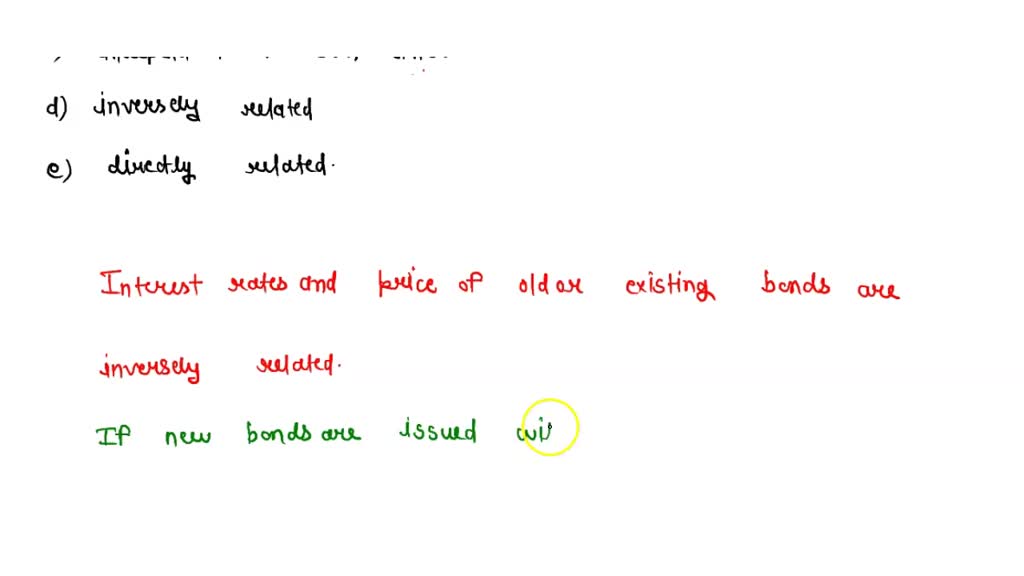 d) inversely related
e) directly related.
Interest rates and price of old or existing bonds are
inversely related.
If new bonds are issued wi